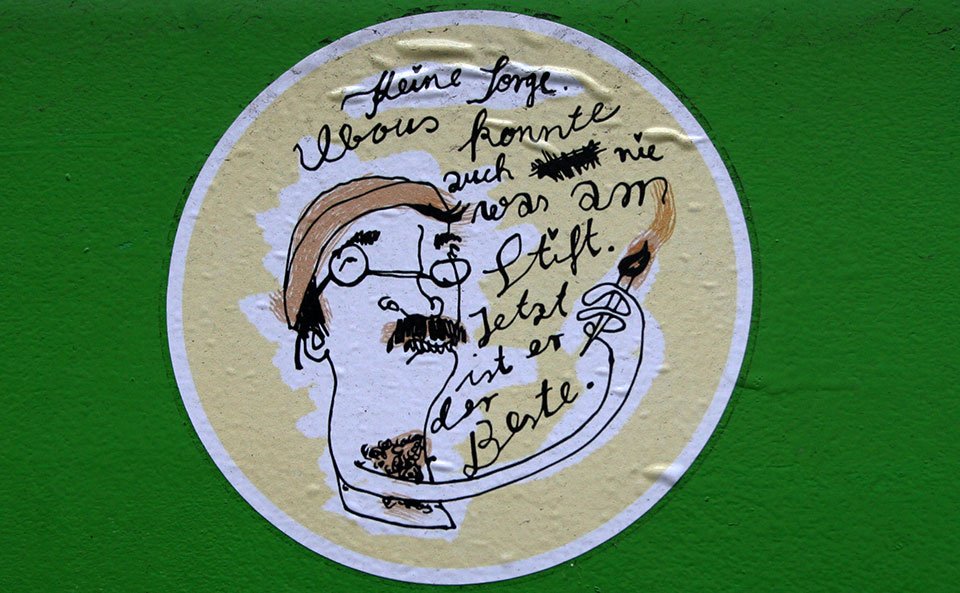 Keine Sorge.
konnte
auch nie
was am
Stift.
Jetzt
ist er
der
Beste.